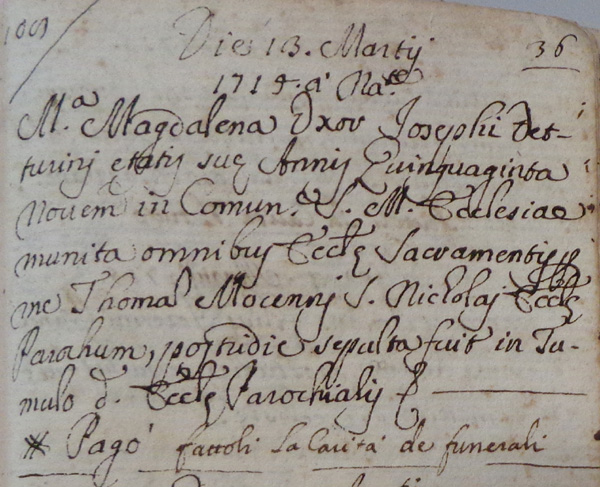 1001
Die 13. Martij
36
1714. a' Na.te
M.a Magdalena Uxor Josephi Vet-
turinj ętatij suę Annij Quinquaginta
Novem in Comun.e S. M. Ecclesiae
munita omnibus Eccłę Sacramentis p
me Thomā Mocennj S. Nicholaj Eccłę
Parohum, postridie sepulta fuit in Tu-
mulo d. Eccłę Parochialij
Pago' fattoli la Carita' de funerali